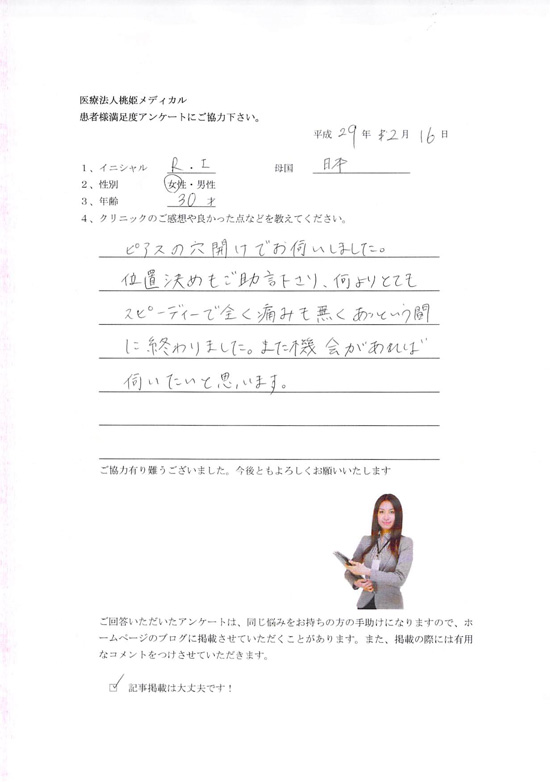 医療法人桃姫メディカル
患者様満足度アンケートにご協力下さい。
平成 29 年 12 月 16 日
1、イニシャル R.I 母国 日本
2、性別 女性・男性
3、年齢 30 才
4、クリニックのご感想や良かった点などを教えてください。
ピアスの穴開けでお伺いしました。
位置決めもご助言下さり、何よりとても
スピーディーで全く痛みも無くあっという間
に終わりました。また機会があれば
伺いたいと思います。
ご協力有り難うございました。今後ともよろしくお願いいたします
ご回答いただいたアンケートは、同じ悩みをお持ちの方の手助けになりますので、ホ
ームページのブログに掲載させていただくことがあります。また、掲載の際には有用
なコメントをつけさせていただきます。
☑ 記事掲載は大丈夫です！